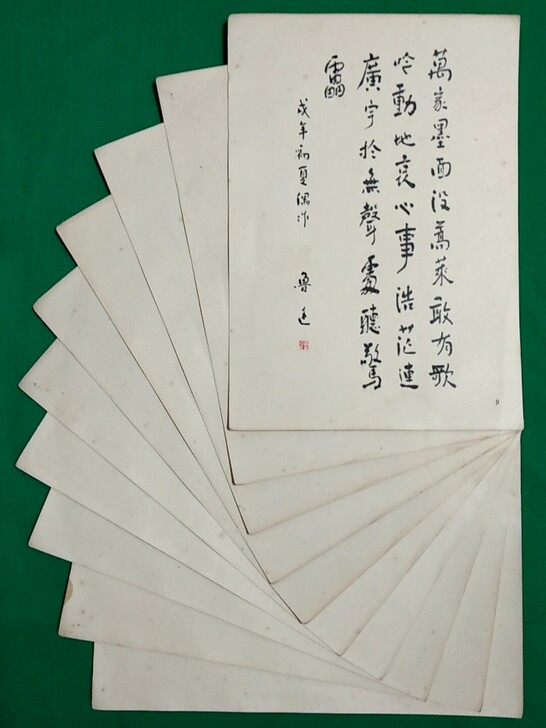 萬家墨面没蒿萊敢有歌
吟動地哀心事浩茫連
廣宇於無聲處聽驚
靁
戌年初夏偶作 魯迅
9